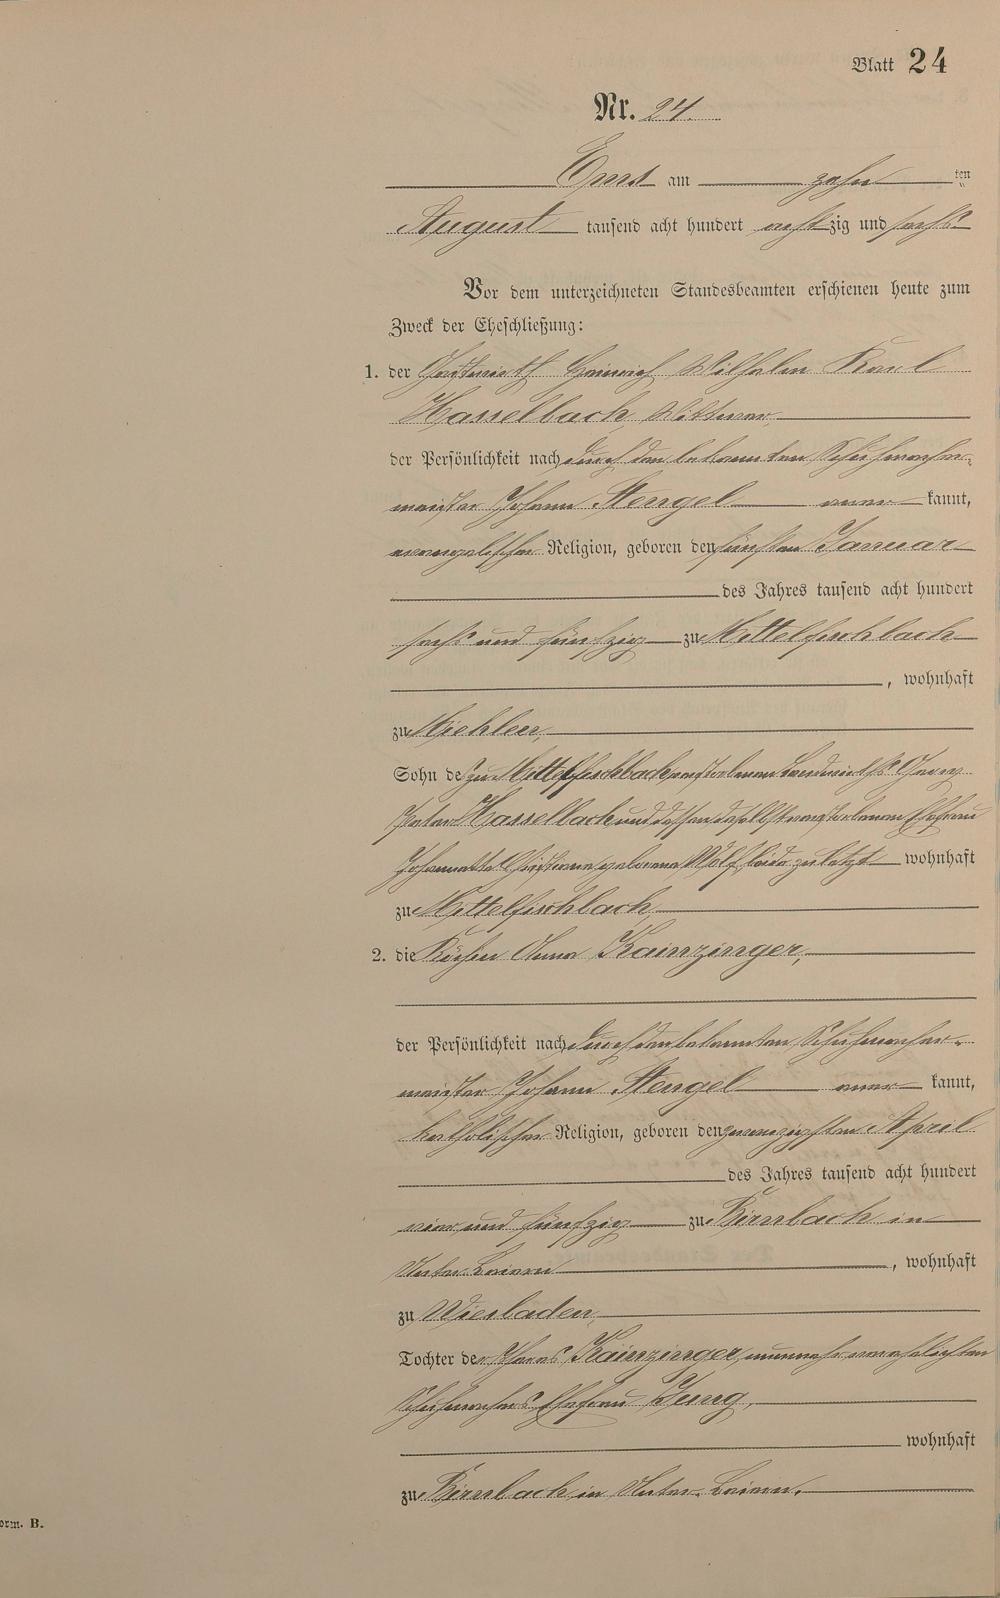 Blatt 24
Nr. 24.
Ems am zehnten
August tausend acht hundert achtzig und sechs.
Vor dem unterzeichneten Standesbeamten erschienen heute zum
Zweck der Eheschließung:
1. der Gastwirth Heinrich Wilhelm Karl
Hasselbach, Wittwer,
der Persönlichkeit nach durch den bekannten Schuhmacher-
meister Johann Stengel aner kannt,
evangelischer Religion, geboren den fünften Januar
des Jahres tausend acht hundert
sechs und fünfzig zu Mittelfischbach
, wohnhaft
zu Miehlen,
Sohn des zu Mittelfischbach verstorbenen Landwirths Georg
Peter Hasselbach und dessen daselbst verstorbenen Ehefrau
Johannette Christiane geborene Wolf beide zuletzt wohnhaft
zu Mittelfischbach,
2. die Köchin Anna Kainzinger,
der Persönlichkeit nach durch den bekannten Schuhmacher-
meister Johann Stengel aner kannt,
katholischer Religion, geboren den zwanzigsten April
des Jahres tausend acht hundert
vier und fünfzig zu Birnbach in
Unter-Baiern, wohnhaft
zu Wiesbaden,
Tochter der Kainzinger, nunmehr verehelichten
Schuhmachers Ehefrau Jung,
wohnhaft
zu Birnbach in Unter-Baiern.
orm. B.